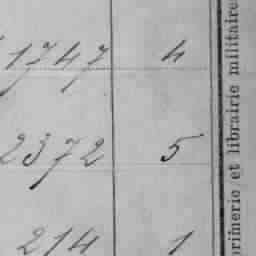 1747 4
2372 5
214 1
primerie et librairie militaire